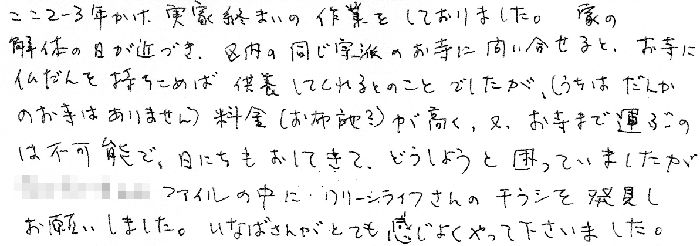 ここ2~3年かけ、実家終まいの作業をしておりました。家の
解体の日が近づき、区内の同じ宗派のお寺に問い合せると、お寺に
仏だんを持ちこめば供養してくれるとのことでしたが、(うちはだんか
のお寺はありません)料金(お布施?)が高く、又、お寺まで運ぶの
は不可能で、日にちもおしてきて、どうしようと困っていましたが
ファイルの中に、クリーンライフさんのチラシを発見し
お願いしました。いなばさんがとても感じよくやって下さいました。